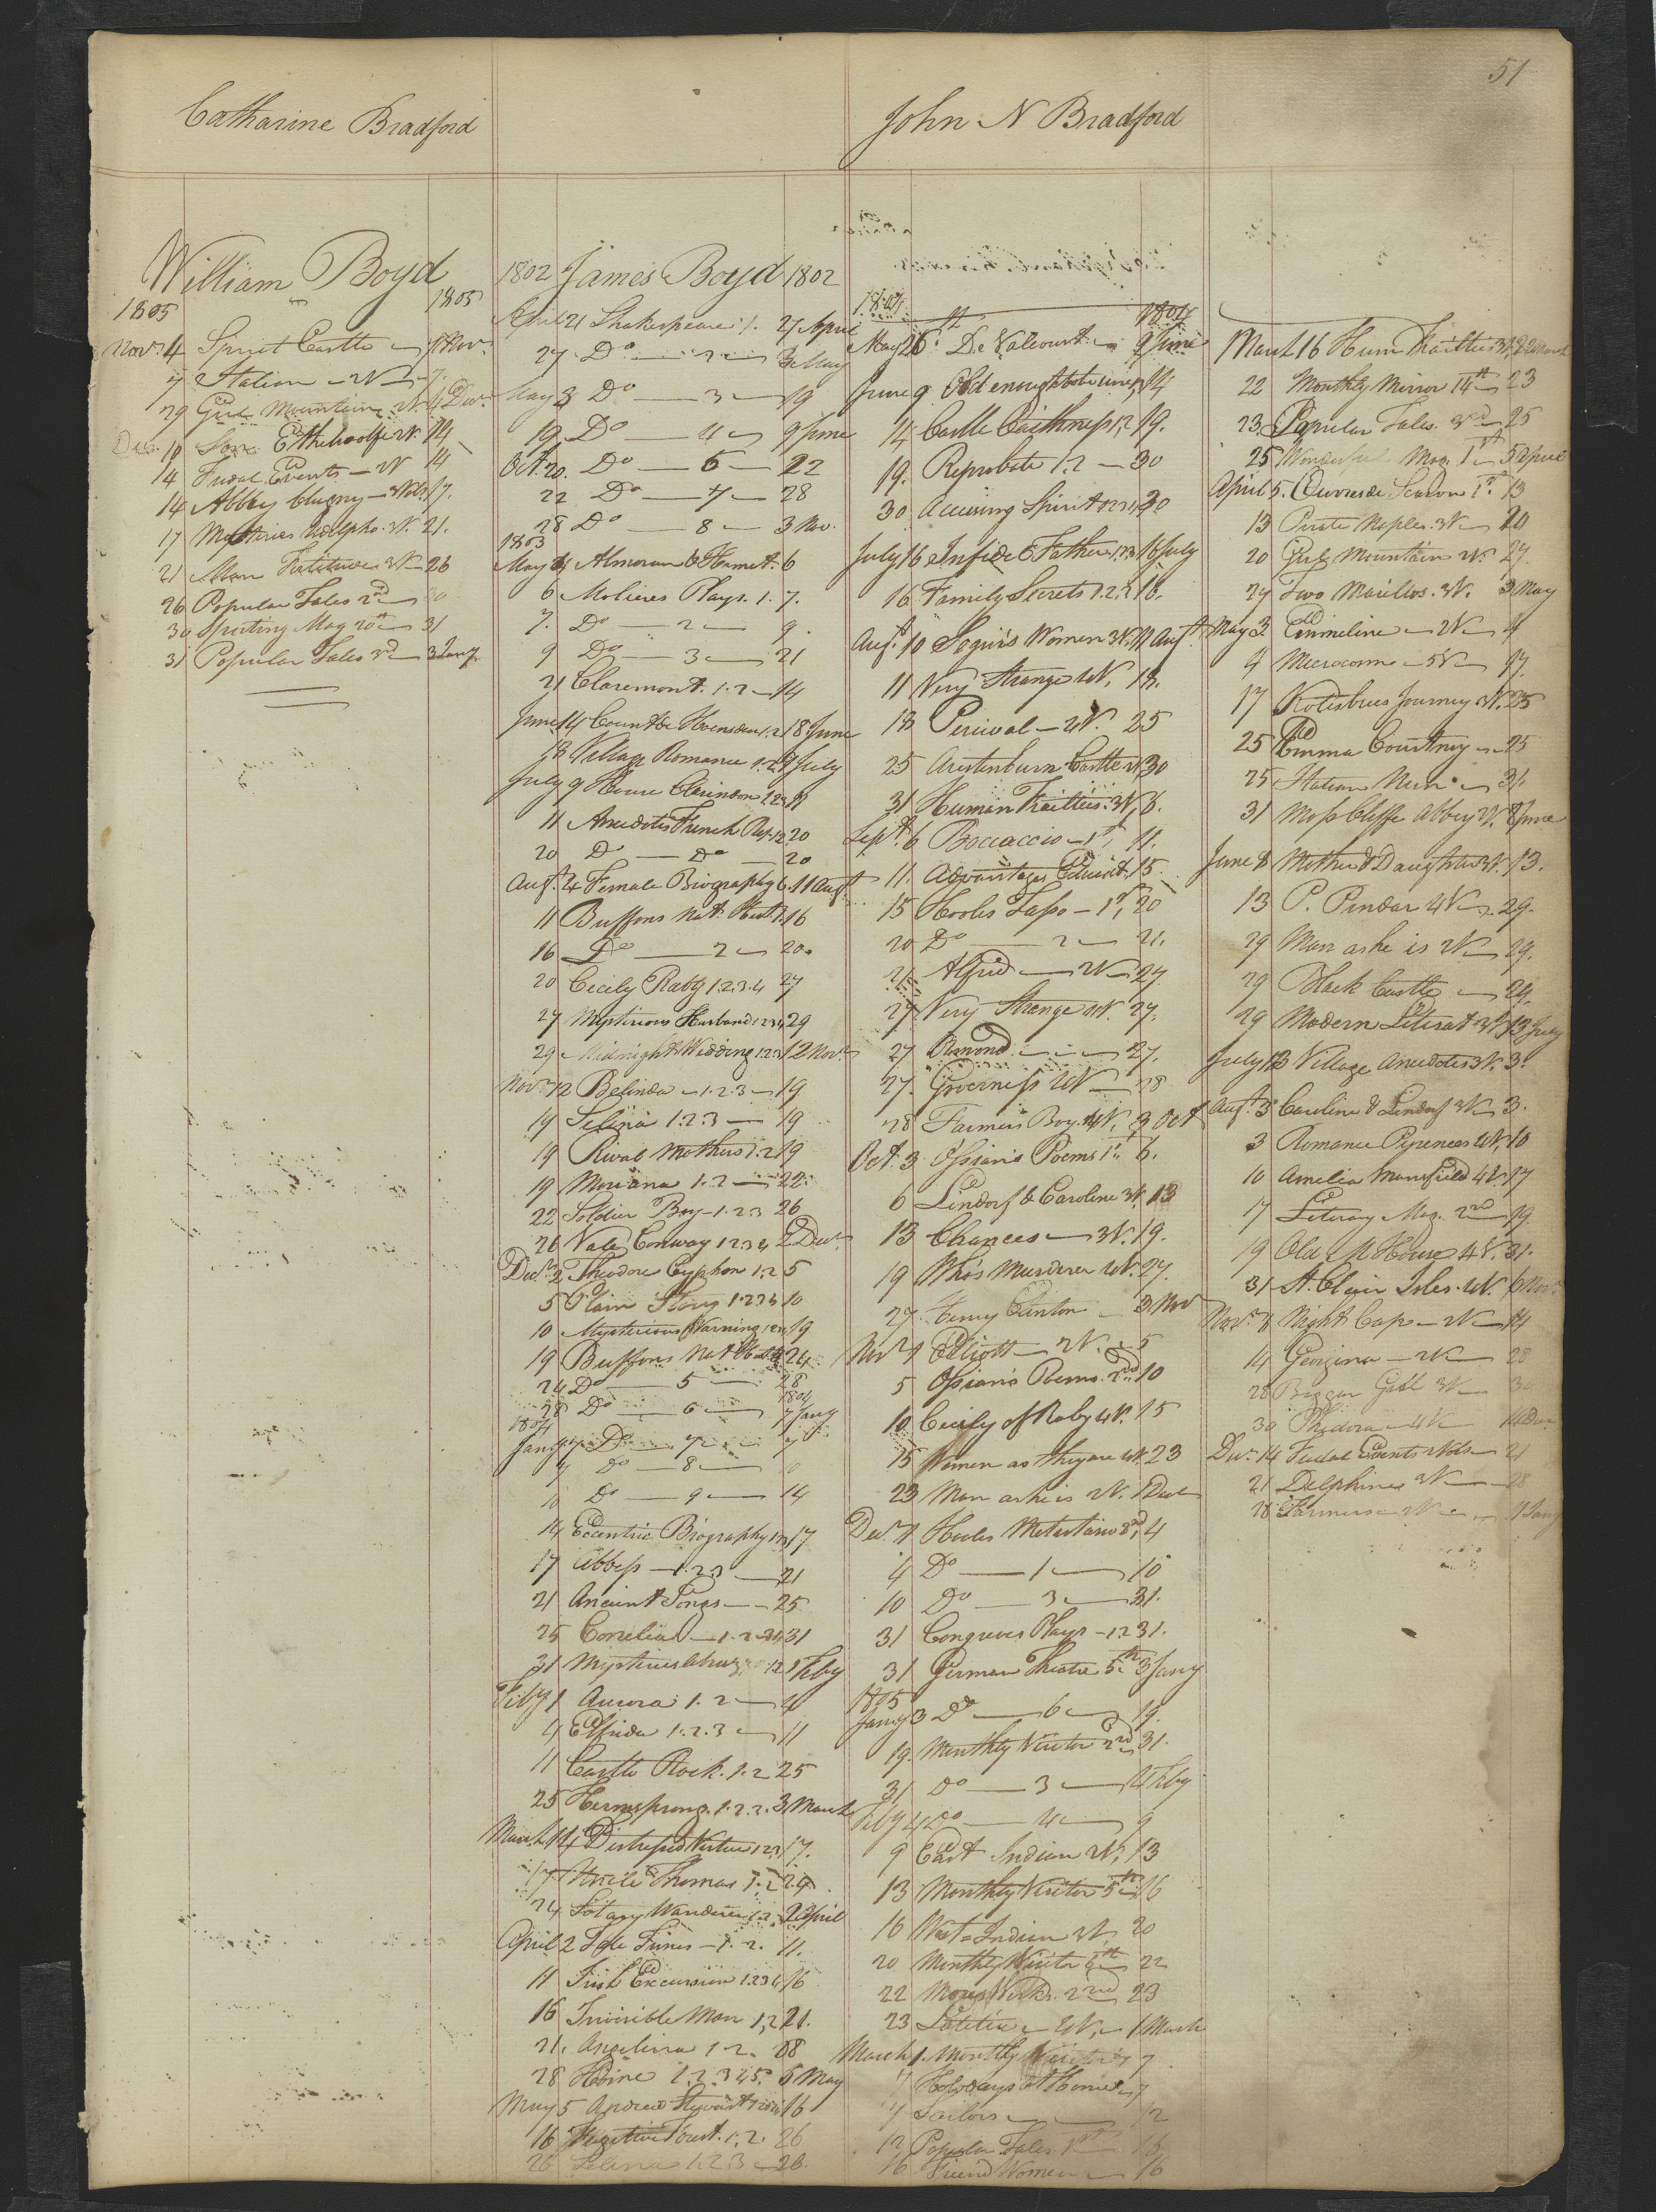 51
Catharine Bradford
John N Bradford
William Boyd
1805 1805
Novr. 4 Castle Novr.
7 Station 2V 7
29 Girl Mountains 2V. 4 Decr
Dec. 10 Son Ethelwolfe 2V. 14
14 Fudal Events 2V 14
14 Abbey Clugny 3Vols. 17.
17 Mysteries Udolpho 3V. 21.
21 Man Fortitude 3V 26
26 Popular Tales 2nd 30
30 Sporting Mag 20th 31
31 Popular Tales 3d 3 Jany
1802 James Boyd 1802
April 21 Shakespeare 1. 27 April
27 Do 2 3 May
May 3 Do 3 19
19 Do 4 9 June
Oct. 20. Do 6 22
22 Do 7 28
28 Do 8 3 Nov.
1803
May 4 Almoran & Hamet. 6
6 Molieres Plays. 1. 7.
7. Do 2 9.
9 Do 3 21
21 Claremont. 1.2 14
June 14 Count de Hoensdern 1.2 18 June
18 Village Romance 1.2 9 July
July 9 House Clarindon 1.2.3 11
11 Anecdotes French Rep. 1.2 20
20 Do Do 20
Augt. 4 Female Biography 6. 11 Augt
11 Buffons Nat. Hist. 1. 16
16 Do 2 20.
20 Cicily Raby 1.2.3.4 27
27 Mysterious Husband 1.2.3.4 29
29 Midnight Wedding 1.2.3 12 Novr
Novr. 12 Belinda 1.2.3 19
19 Selina 1.2.3 19
19 Rival Mothers 1.2 19
19 Moriana 1.2 22.
22 Soldier Boy 1.2.3 26
26 Vale Conway 1.2.3.4 2 Decr
Decr. 2 Theodore Cyphon 1.2 5
5 Plain Story 1.2.3.4 10
10 Mysterious Warning 1.2.3.4 19
19 Buffons Nat H 24
24 Do 5 28
28 Do 6 7 Jany
1804
Jany 7 Do 7 7
7 Do 8 10
10 Do 9 14
14 Eccentric Biography 17
17 Abbess 1.2.3 21
21 Ancient Songs 25
25 Cornelia 1.2 31
31 Mysteries Abruzzo 1.2 1 Feby
Feby 1 Aurora 1.2 4
4 Elfrida 1.2.3 11
11 Castle Rock. 1.2 25
25 Hermsprong. 1.2.3. 3 March
March 14 Distressed Virtue 1.2.3 17.
17 Uncle Thomas 1.2 24
24 Solitary Wanderer 1.2. 2 April
April 2 Tale Times 1.2. 11.
11 Irish Excursion 1.2.3.4 16
16 Invisible Man 1.2 21.
21. Angelina 1.2. 28
28 Heoine 1.2.3.4.5. 5 May
May 5 Andrew Stewart 1.2.3.4 16
16 Fugitive Court. 1.2. 26
26 Selina 1.2.3 26.
1804 1804
May 26. De Valcourt 9 June
June 9 Old enough to be 14
14 Castle Caithness 1.2 19.
19. Reprobate 1.2 30
30 Accusing Spirit 1.2.3.4 30
July 16 Infidel Father 1.2.3 16 July
16 Family Secrets 1.2.3 16.
Augt. 10 Segurs Women 3V. 11 Augt
11 Very Strange 2V. 18.
18 Percival 2V. 25
25 Austenburn Castle 2V. 30
31 Human Frailties. 3V. 6.
Sept. 6 Boccaccio 1st. 11.
11. Advantages Educat. 15
15 Hooles Tasso 1st. 20
20 Do 2 21.
21 Alfred 2V 27
27 Very Strange 2V. 27.
27 Ormond 27.
27. Governess 2V 28
28 Farmers Boy. 4V. 3 Oct
Oct. 3 Ossians Poems 1st. 6.
6 Lindorf & Caroline 3V. 13
13 Chances 3V. 19.
19 Who's Murderer 4V. 27.
27 Henry Clinton 3 Nov
Novr Elliott 2V. 5
5 Ossians Poems. 2nd 10
10 Cicily of Raby 4V. 15
15 Women as they are 4V. 23
23 Man as he is 2V. 1 Decr
Decr. 1 Hooles Metastasio 2d 4
4 Do 1 10
10 Do 3 31.
31 Congreves Plays 1.2 31.
31 German Theatre 5th 3 Jany
1805
Jany 3 Do 6 19.
19. Monthly Visitor 2nd 31.
31 Do 3 4 Feby
Feby 4 Do 4 9
9 East Indian 2V. 13
13 Monthly Visitor 5th 16
16 West Indian 2V. 20
20 Monthly Visitor 6th 22
22 Mores Works. 2nd 23
23 Latitia 2V. 1 March
March 1. Monthly Visitor 7 7
7 Holidays at Home 7
7 Sailors 12
12 Popular Tales. 1st 16
16 Friend Women 16
March 16 Hum Frailties 3V. 22 March
22 Monthly Mirror 14th 23
23. Popular Tales. 3d 25
25 Wonderful Mag. 1st 5 April
April 5. Ouvres de Scarron 1st. 13
13 Pirate Naples. 3V 20
20 Girl Mountain 2V. 27.
27 Two Marillos. 3V. 3 May
May 3 Emmeline 2V 4
4 Microcosm 5V 17.
17 Kotzebues Journey 3V. 25
25 Emma Courtney 25
25 Italian Nun 31.
31 Moss Cliffe Abbey 3V. 8 June
June 8 Mother & Daughter 3V. 13.
13 P. Pindar 4V 29.
29 Man as he is 2V 29.
29 Black Castle 29.
29 Modern Literat. 3V. 13 July
July 13 Village Anecdotes 3V. 3.
Augt. 3 Caroline & Lindorf 3V 3.
3 Romance Pyrenees 4V. 10
10 Amelia Mansfield 4V. 17
17 Literary Mag. 2nd 19.
19 Old M House 4V. 31.
31 St. Clair Isles. 4V. 6 Novr.
Novr. 8 Night Cap 2V 14
14 Georgina 2V 28
28 Beggar Girl 3V 30
30 Phedora 4V 14 Decr
Decr. 14 Fudal Events 2Vols 21
21 Delphine 3V 28
28 Farmers 2V 9 Jany